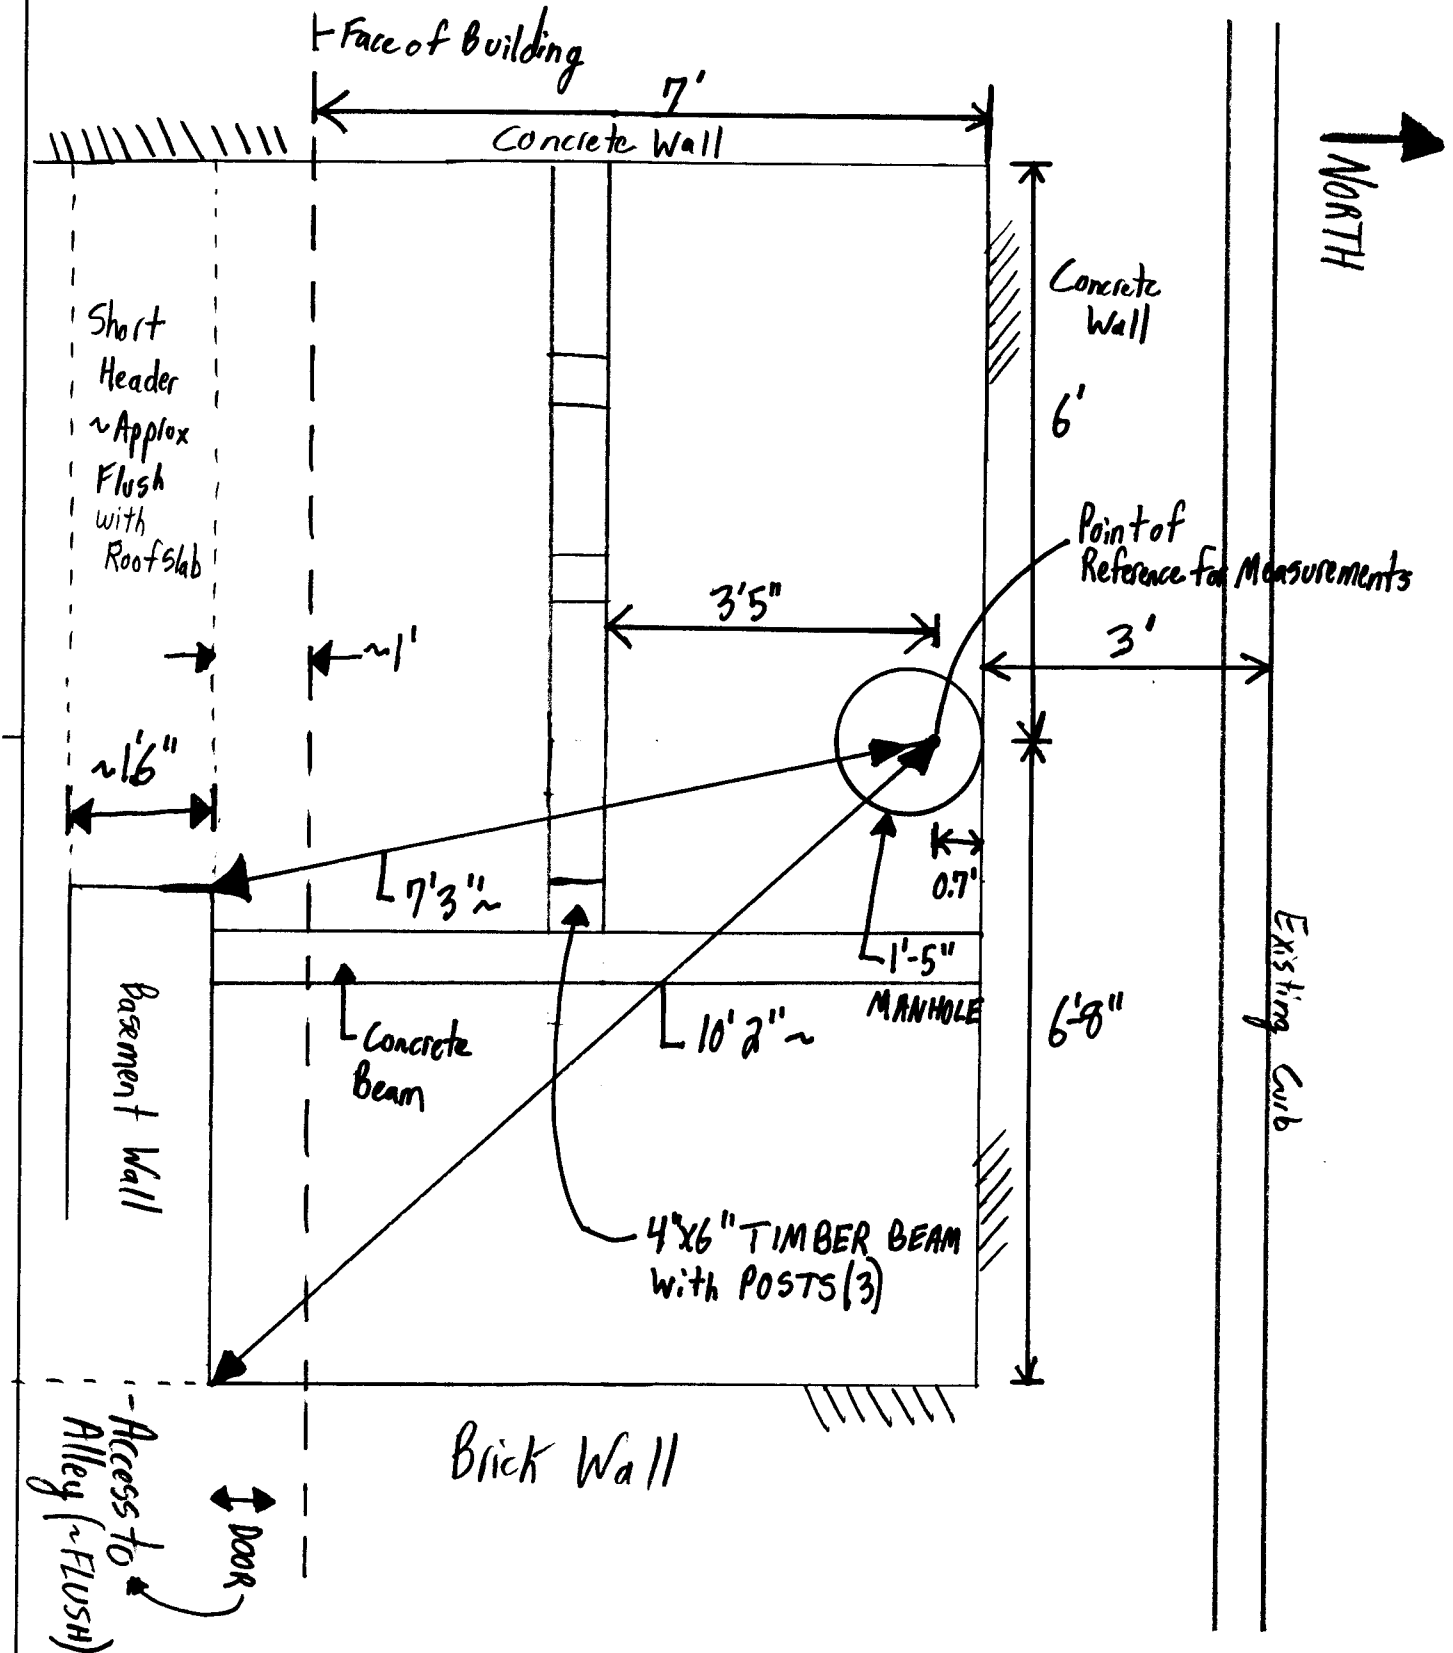 Face of Building
7'
Concrete Wall
NORTH
Concrete
Wall
Short
Header
~Approx
Flush
with
Roof Slab
6'
Point of
Reference for Measurements
3'5"
3'
~1'
~1'6"
7'3"~
0.7'
1'-5"
MANHOLE
Existing Curb
Basement Wall
Concrete
Beam
10'2"~
6'-8"
4"x6" TIMBER BEAM
with POSTS (3)
Brick Wall
- Access to
Alley (~FLUSH)
DOOR